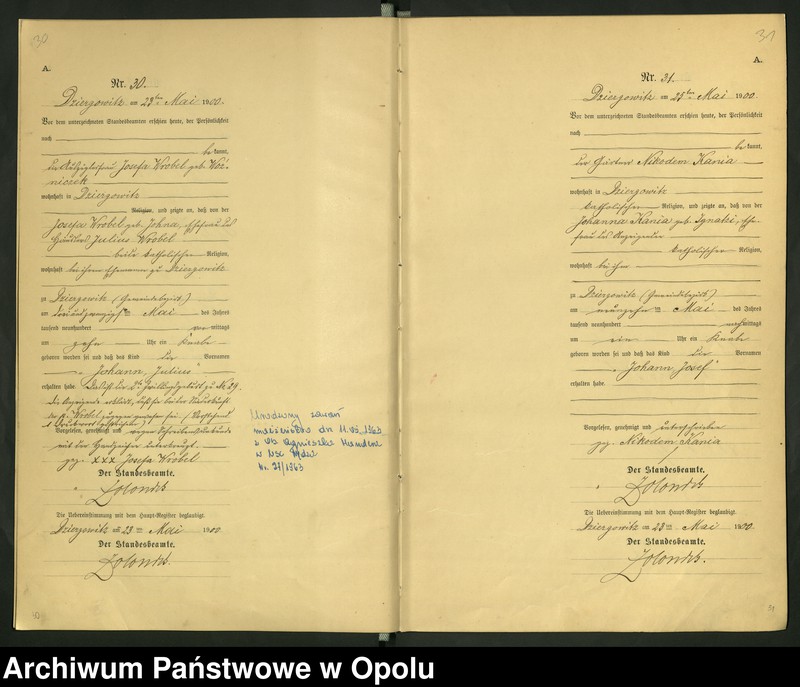 30
A.
Nr. 30.
Dziergowitz am 23ten Mai 1900.
Vor dem unterzeichneten Standesbeamten erschien heute, der Persönlichkeit
nach
bekannt,
die Auszüglerfrau Josefa Wrobel geb. Woź-
niczek
wohnhaft in Dziergowitz
Religion, und zeigte an, daß von der
Josefa Wrobel geb. Johna, Ehefrau des
Häuslers Julius Wrobel
beide katholischer Religion,
wohnhaft bei ihrem Ehemanne zu Dziergowitz
zu Dziergowitz (Gemeindebezirk)
am Mai des Jahres
tausend neunhundert vormittags
um zehn Uhr ein Knabe
geboren worden sei und daß das Kind die Vornamen
„Johann, Julius"
erhalten habe. Dasselbe ist die Zwillingsgeburt zu Nr 29.
Die Anzeigende erklärt, daß sie bei der Niederkunft
der p. Wrobel zugegen gewesen sei.
Vorgelesen, genehmigt und wegen Schreibensunkunde
mit dem Handzeichen unterkreuzt.
gez. xxx Josefa Wrobel
Der Standesbeamte.
Zolondek
Die Uebereinstimmung mit dem Haupt-Register beglaubigt.
Dziergowitz am 23ten Mai 1900
Der Standesbeamte.
Zolondek.
30
Urodzony zawarł
małżeństwo dn 11.05.1963
z Agnieszka
w USC
Nr. 27/1963
31
A.
Nr. 31.
Dziergowitz am 25ten Mai 1900.
Vor dem unterzeichneten Standesbeamten erschien heute, der Persönlichkeit
nach
bekannt,
der Gärtner Nikodem Kania
wohnhaft in Dziergowitz
katholischer Religion, und zeigte an, daß von der
Johanna Kania geb. Ignatzi, Ehe-
frau des Anzeigenden
katholischer Religion,
wohnhaft bei ihm
zu Dziergowitz (Gemeindebezirk)
am neunzehnten Mai des Jahres
tausend neunhundert nachmittags
um ein Uhr ein Knabe
geboren worden sei und daß das Kind die Vornamen
„Johann, Josef"
erhalten habe.
Vorgelesen, genehmigt und unterschrieben
gez. Nikodem Kania
Der Standesbeamte.
Zolondek
Die Uebereinstimmung mit dem Haupt-Register beglaubigt.
Dziergowitz am 25ten Mai 1900.
Der Standesbeamte.
Zolondek.
31
Archiwum Państwowe w Opolu